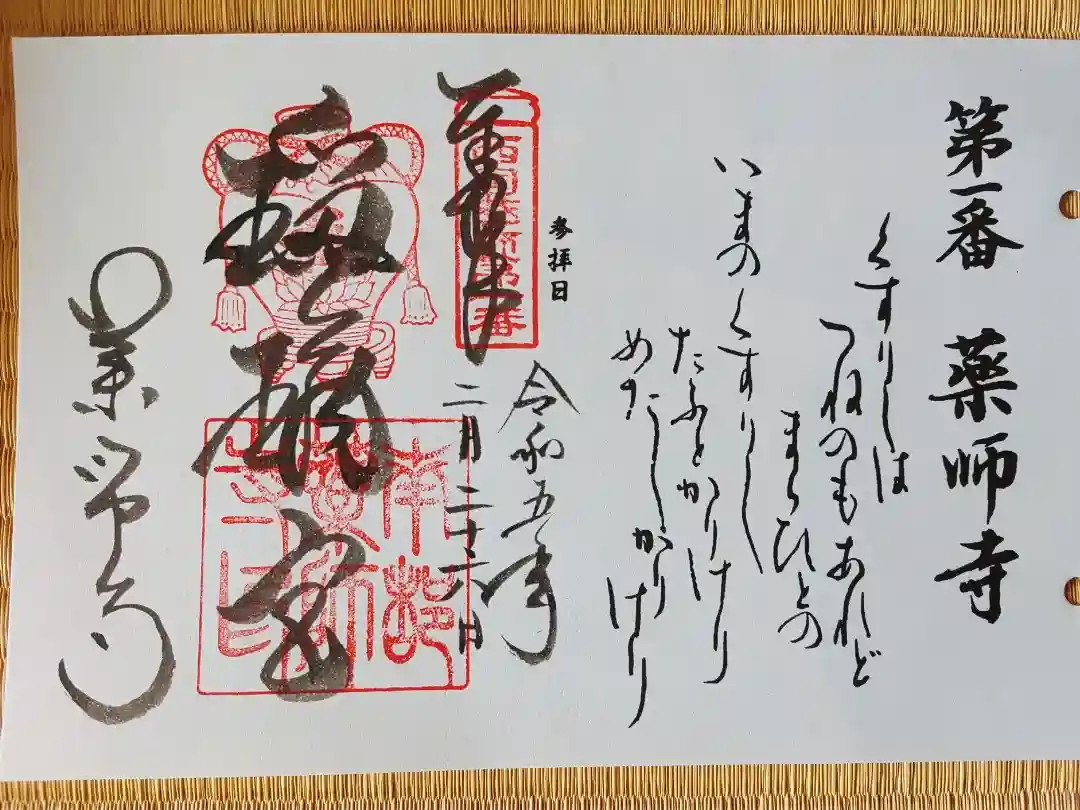 第一番 薬師寺
くすりしは
つねのもあれど
まらひとの
いまのくすりし
たふとかりけり
めだしかりけり
参拝日
令和五年
二月二十六日
奉拝
薬師寺